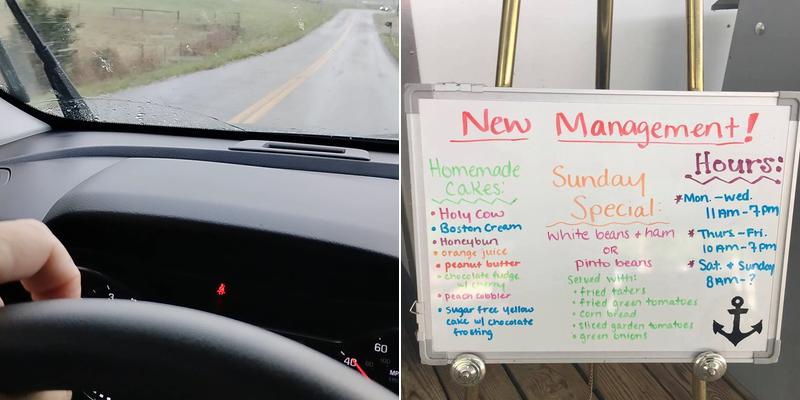 3
40
60
80
MP
New Management!
Homemade
Cakes:
• Holy Cow
• Boston Cream
• Honeybun
• orange juice
• peanut butter
• chocolate fudge
w/ cherry
• peach cobbler
• Sugar free yellow
cake w/ chocolate
frosting
Sunday
Special:
White beans + ham
OR
pinto beans
Served with:
• fried taters
• fried green tomatoes
• corn bread
• sliced garden tomatoes
• green onions
Hours:
* Mon. - Wed.
11 AM - 7 PM
* Thurs. - Fri.
10 AM - 7 PM
* Sat. + Sunday
8 AM - ?